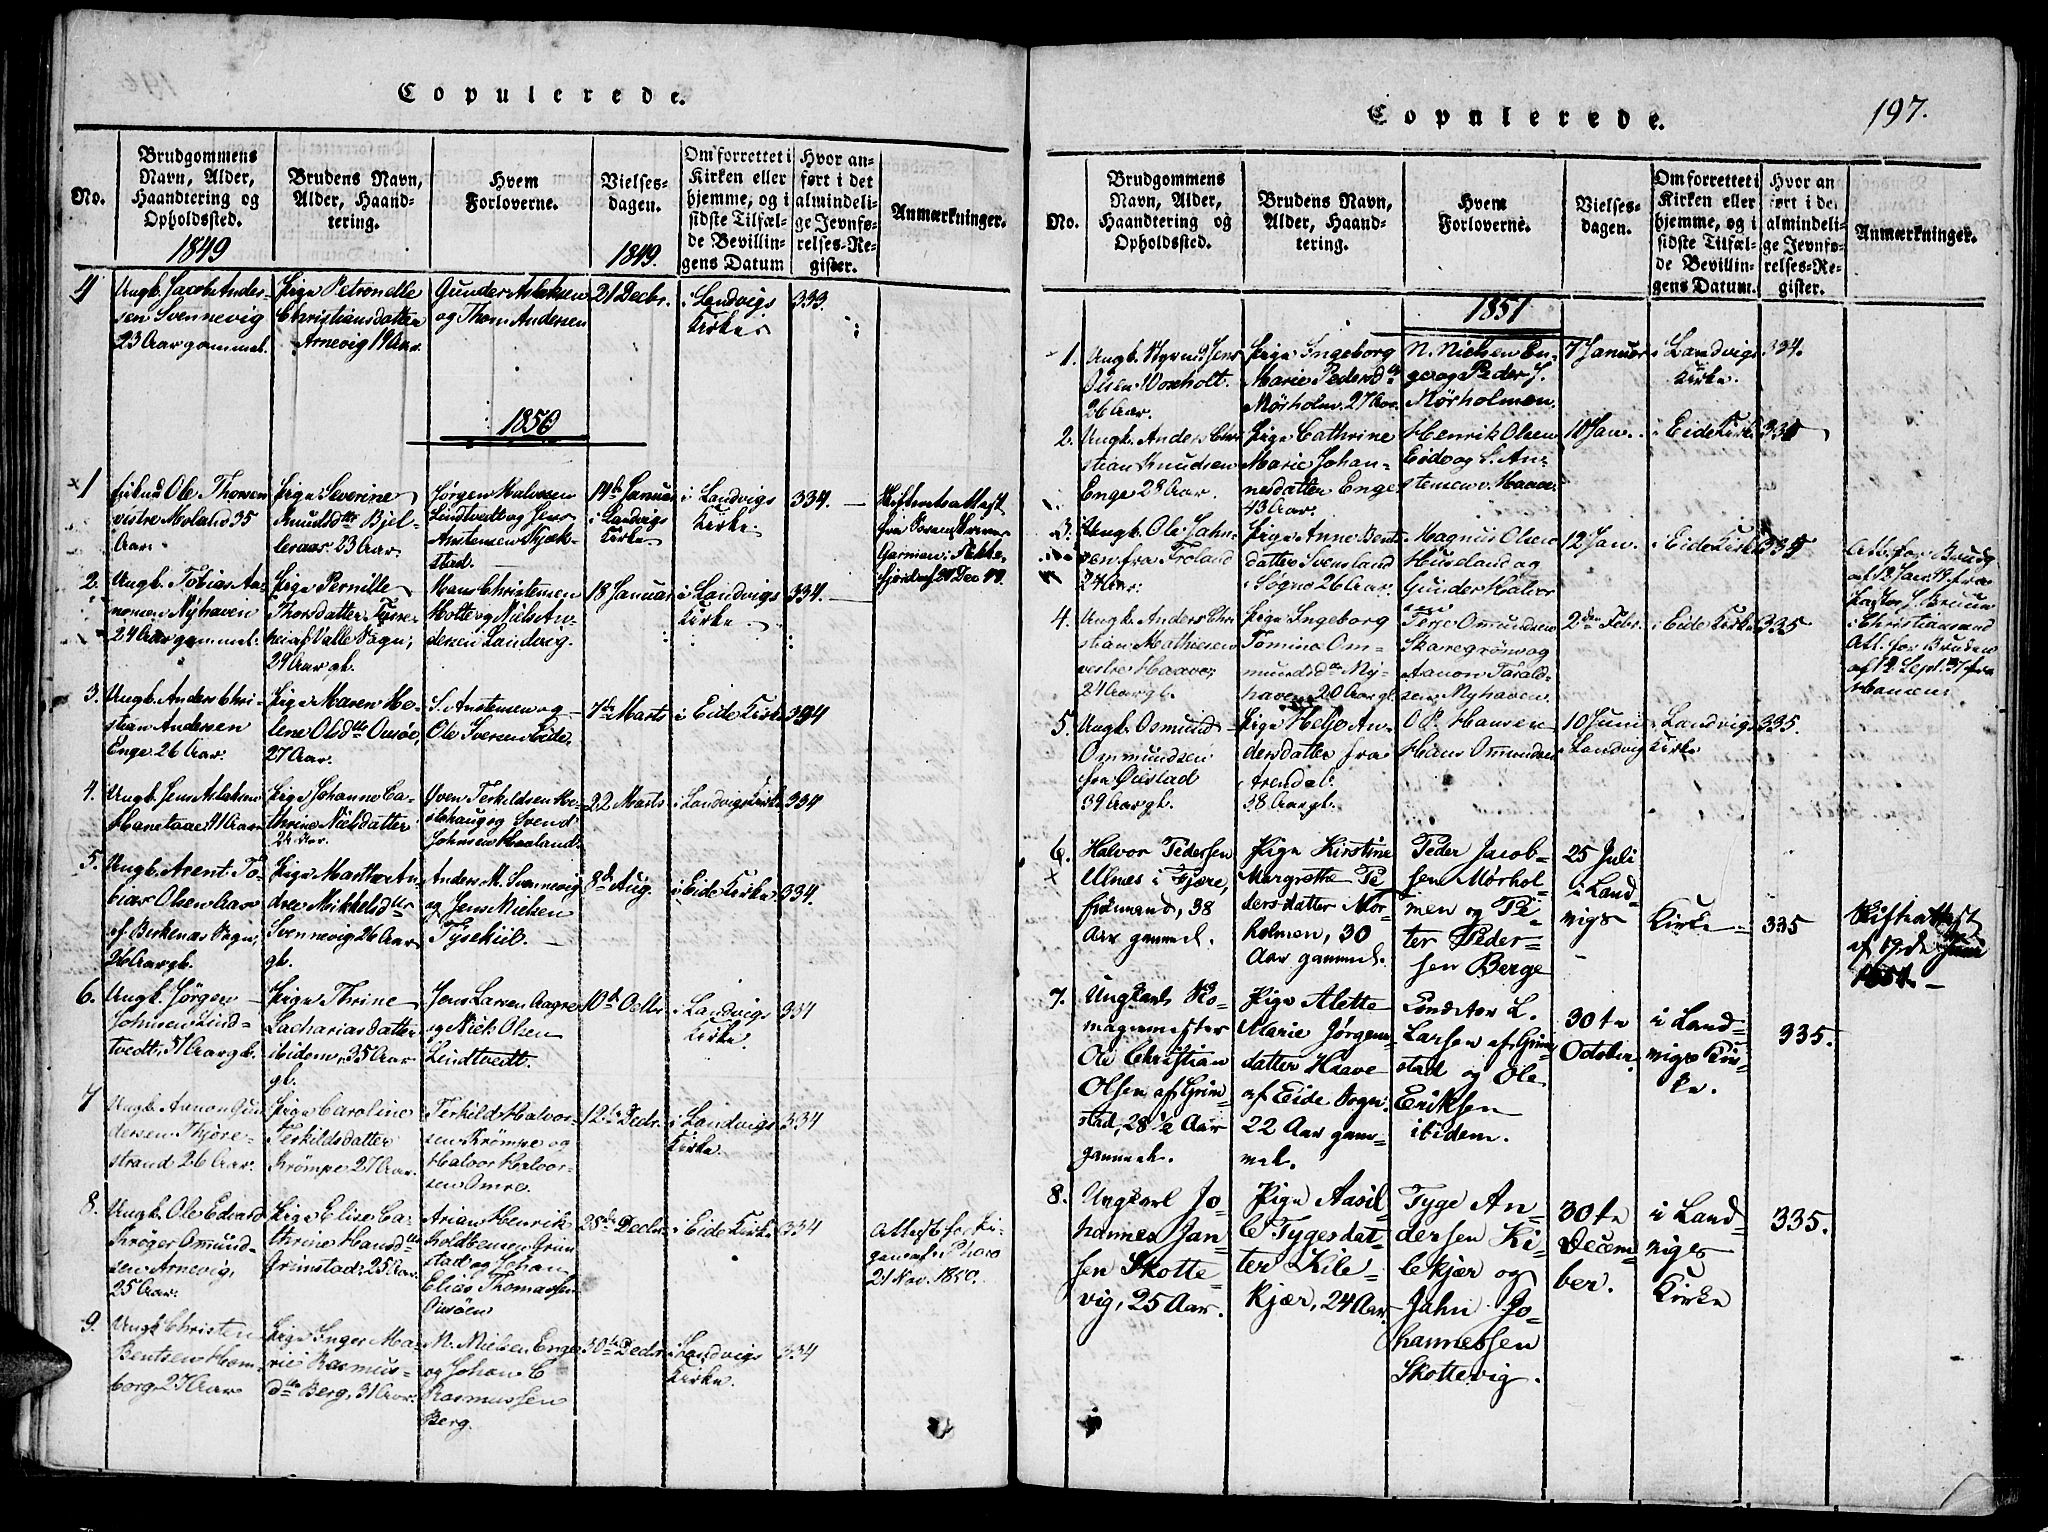 Copulerede.
No.
Brudgommens
Navn, Alder,
Haandtering og
Opholdssted.
1849
Brudens Navn,
Alder, Haand-
tering.
Hvem
Forloverne.
Vielses-
dagen.
1849.
Om forrettet i
Kirken eller
hjemme, og i
sidste Tilfæl-
de Bevillin-
gens Datum
Hvor an-
ført i det
almindeli-
ge Jevnfø-
relses-Re-
gister.
Anmærkninger.
Ungk. Jacob Ander-
sen Svennevig
23 Aar gammel.
Pige Petronelle
Christiansdatter
Arnevig 19 Aar.
Gunder Aslaksen
og Thom Andersen
21 Decbr.
i Landvigs
Kirke
333.
1850
1
Ole Thorsen
vestre Moland 35
Aar.
Pige Severine
Knudsdtr Bjel-
leraas. 23 Aar.
Jørgen Halvorsen
Lindtvedt og Jens
Anstensen
stad.
14de Januar
i Landvigs
Kirke
i Landvigs
Kirke.
334.
Skifteattest
fra
27 Dec 49.
2.
Ungk. Tobias Aa-
nonsen Nyhaven
24 Aar gammel.
Pige Pernille
Thorsdatter
af Valle Sogn,
29 Aar gl.
Hans Christensen
Holte og Niels An-
dersen Landvig.
18 Januar
i Landvigs
Kirke.
334.
3.
Ungk. Anders Chri-
stian Andersen
Enge. 26 Aar.
Pige Maren He-
lene Olsdtr
27 Aar.
S. Anstensen og
Ole Iversen Eide.
7de Marts
i Eide Kirke
334
4.
Ungk. Jens Aslaksen
Hanetaae, 41 Aar.
Pige Johanne Ca-
thrine Nielsdatter
24 Aar.
Oven Terkildsen
og Svend
Johnsen Haaland.
22 Marts
i Landvigs Kirke
334
5.
Ungk. Arent To-
bias Olsen Aas
af Berkenæs Sogn,
26 Aar gl.
Pige Marthe An-
drea Mikkelsdtr
Svennevig 26 Aar
gl.
Anders M. Svennevig
og Jens Nielsen
Tysekiil.
8de Aug.
i Eide Kirke
334.
6.
Ungk. Jørgen
Johnsen Lind-
tvedt, 51 Aar gl.
Pige Thrine
Zachariasdatter
ibidem, 35 Aar
gl.
Jens Larsen Aagre
og Niels Olsen
Lindtvedt.
10de Octbr
i Landvigs
Kirke.
334
7
Ungk. Aanon Gun-
dersen Thjore-
strand 26 Aar.
Pige Caroline
Terkildsdatter
Krømpe 27 Aar.
Terkild Halvor-
sen Krømpe og
Halvor Halvor-
sen Omre.
12te Decbr.
i Landvigs
Kirke.
334
8.
Ungk. Ole Edvard
Krøger Omund-
sen Arnevig,
25 Aar.
Pige Elise Ca-
thrine Hansdtr
Grimstad, 25 Aar.
Arian Henrik
Holdbensen Grim
stad og Johan
Elias Thomassen
28de Decbr.
i Eide Kirke
334
Attest for Pi-
gen af
21 Nov. 1850.
9.
Ungk Christen
Bentsen Hom-
borg, 27 Aar
Pige Inger Ma-
rie Rasmus-
dtr Berg, 31 Aar.
N. Nielsen Enge
og Johan C
Rasmussen
Berg.
30te Decbr
i Landvigs
Kirke.
334
Copulerede.
197.
No.
Brudgommens
Navn, Alder,
Haandtering og
Opholdssted.
Brudens Navn,
Alder, Haand-
tering.
Hvem
Forloverne.
Vielses-
dagen.
Om forrettet i
Kirken eller
hjemme, og i
sidste Tilfæl-
de Bevillin-
gens Datum.
Hvor an
ført i det
almindeli-
ge Jevnfø-
relses-Re-
gister.
Anmærkninger.
1851
1.
Ungk. Styrmd Jens
Olsen Voxholt.
26 Aar.
Pige Ingeborg
Marie Pedersdtr
Mørholm. 27 Aar.
N. Nielsen En-
ge og Peder J.
Mørholmen.
7 Januar
i Landvigs
Kirke.
334.
2.
Ungk. Anders Chri
stian Knudsen
Enge 28 Aar.
Pige Cathrine
Marie Johan-
nesdatter Enge
43 Aar.
Henrik Olsen
Eide og S. An-
stensen v. Haave.
10 Jan.
i Eide Kirke
335
3.
Ungk. Ole Jahn-
sen fra Froland
24 Aar.
Pige Anne Bent
datter Svensland
i Søgne 26 Aar.
Magnus Olsen
Husland og
Gunder Halvor
sen
12 Jan.
i Eide Kirke
335
Att. for Brudg
af 12 Jan 49. fra
Pastor J. Bruun
i Christiansand
Att. for Bruden
af 12 Sept. 37 fra
Hansen.
4.
Ungk. Anders Chri
stian Mathiesen
vestre Haave,
24 Aar gl.
Pige Ingeborg
Tomine Om-
mundsdtr Ny-
haven 20 Aar gl.
Terje Ommundsen
Skaregrøn og
Aanon Tarald-
sen Nyhaven.
2den Febr.
i Eide Kirke
335
5.
Ungk. Osmund
Ommundsen
fra Øiestad
39 Aar gl.
Pige Helje An-
dersdatter fra
Arendal.
38 Aar gl.
O. P. Hansen
Hans Ommundsen
10 Juni
Landvig
i Landvigs
Kirke
335.
6.
Halvor Pedersen
Ulnes i Fjære,
Enkemand, 38
Aar gammel.
Pige Kirstine
Margrethe Pe
dersdatter Mør-
holmen, 30
Aar gammel.
Peder Jacob-
sen Mørhol-
men og Pe-
ter Peder-
sen Berge
25 Juli
i Land-
vigs
Kirke
335
Skifteattest
af 19de Juni
1851.
7.
Ungkarl
magermester
Ole Christian
Olsen af Grim-
stad, 28 1/2 Aar
gammel.
Pige Alette
Marie Jørgens-
datter Haave
af Eide Sogn.
22 Aar gam-
mel.
Conditor L.
Larsen af Grim-
stad og Ole
Eriksen
ibidem.
30te
October.
i Land-
vigs Kir-
ke.
335.
8.
Ungkarl Jo-
hannes Jan-
sen Skotte-
vig, 25 Aar.
Pige Aasil-
le Tygesdat-
ter Kile-
kjær, 24 Aar.
Tyge An-
dersen Ki-
lekjær og
Jahn Jo-
hannessen
Skottevig.
30te
Decem-
ber.
i Land-
vigs
Kirke
335.